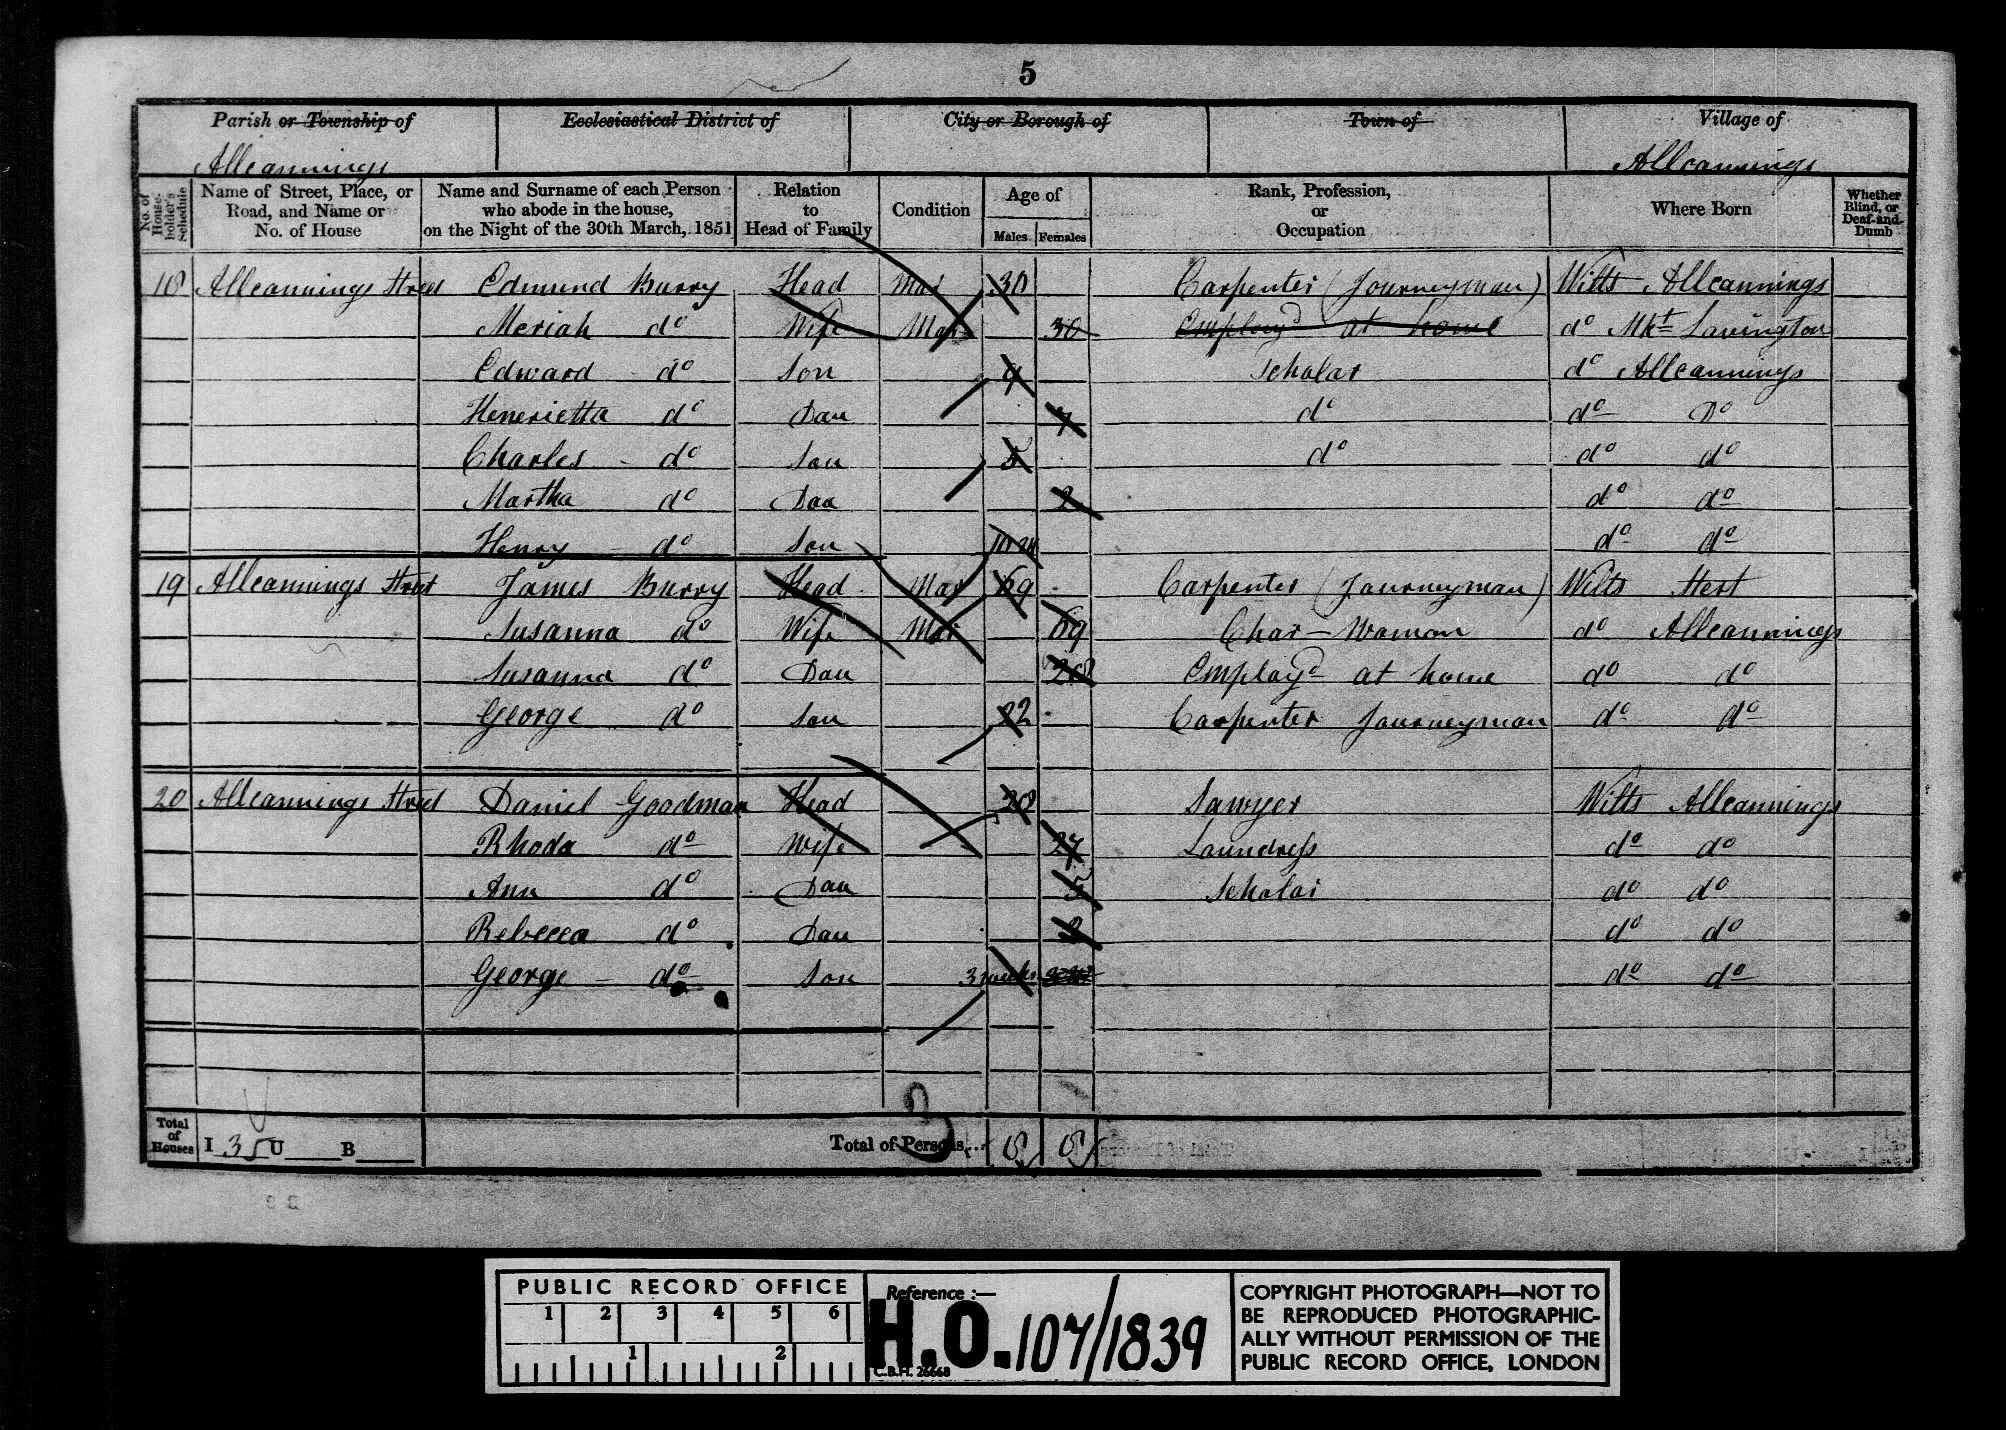 5
Parish or Township of Ecclesiastical District of City or Borough of Town of Village of
Allcannings Allcannings
No. of House-holder's Schedule Name of Street, Place, or Road, and Name or No. of House Name and Surname of each Person who abode in the house, on the Night of the 30th March, 1851 Relation to Head of Family Condition Age of Males Females Rank, Profession, or Occupation Where Born Whether Blind, or Deaf-and-Dumb
18 Allcannings Street Edmund Burry Head Mar 30 Carpenter (Journeyman) Wilts Allcannings
Meriah do Wife Mar 30 Employd at home do Mkt Lavington
Edward do Son 9 Scholar do Allcannings
Henerietta do Dau 7 do do Do
Charles do Son 5 do do do
Martha do Dau 2 do do
Henry do Son do do
19 Allcannings Street James Burry Head Mar 69 Carpenter (Journeyman) Wilts Stert
Susanna do Wife Mar 69 Char-Woman do Allcannings
Susanna do Dau Employd at home do do
George do Son 22 Carpenter Journeyman do do
20 Allcannings Street Daniel Goodman Head 28 Sawyer Wilts Allcannings
Rhoda do Wife 27 Laundress do do
Ann do Dau 5 Scholar do do
Rebecca do Dau do do
George do Son 3 weeks do do
Total of Houses I 3 U B Total of Persons... 8 8
PUBLIC RECORD OFFICE
1 2 3 4 5 6
1 2
Reference :—
H.O. 107/1839
C.B.H. 26668
COPYRIGHT PHOTOGRAPH—NOT TO
BE REPRODUCED PHOTOGRAPHIC-
ALLY WITHOUT PERMISSION OF THE
PUBLIC RECORD OFFICE, LONDON